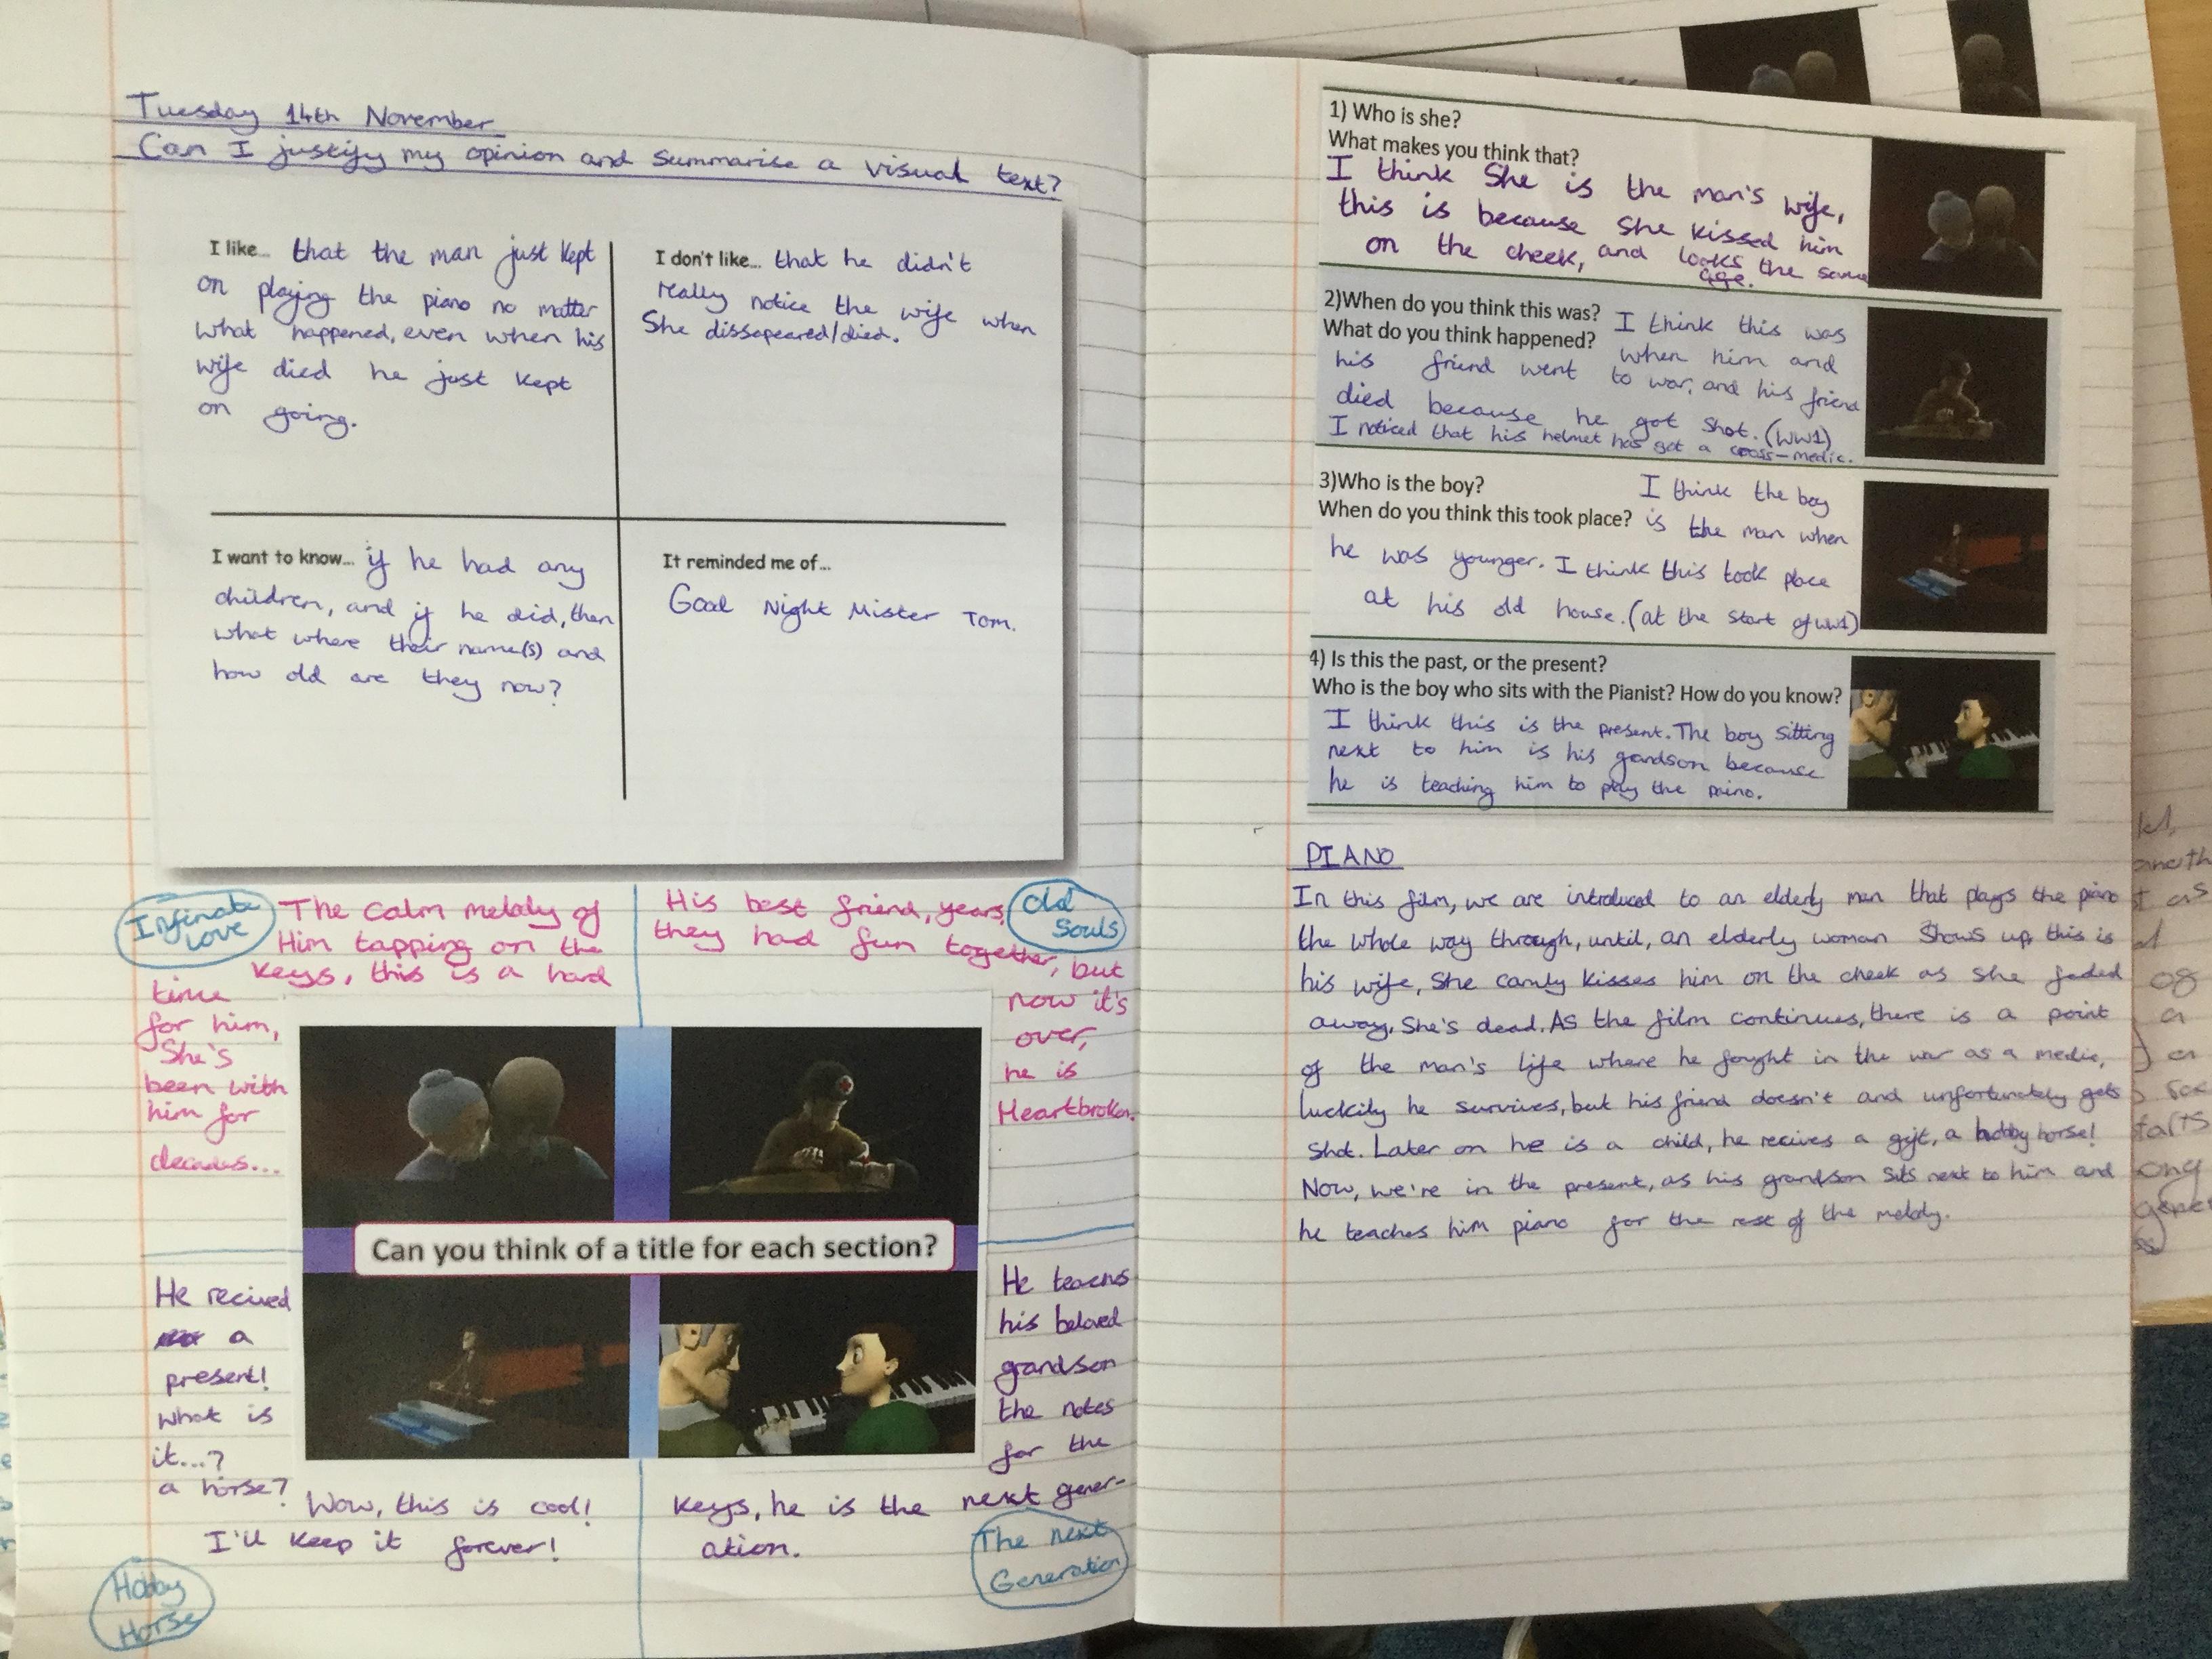 Tuesday 14th November
Can I justify my opinion and summarise a visual text?
I like... that the man just kept
on playing the piano no matter
what happened, even when his
wife died he just kept
on going.
I don't like... that he didn't
really notice the wife when
She dissapeared/died.
I want to know... if he had any
children, and if he did, then
what where their name(s) and
how old are they now?
It reminded me of...
Good Night Mister Tom.
Infinate
Love
The calm melody of
Him tapping on the
keys, this is a hard
time
for him,
She's
been with
him for
decades...
His best friend, years,
they had fun together, but
now it's
over,
he is
Heartbroken.
Old
Souls
Can you think of a title for each section?
He recived
a
present!
what is
it...?
a horse?
Wow, this is cool!
I'll keep it forever!
Hobby
Horse
He teachs
his beloved
grandson
the notes
for the
keys, he is the next gener-
ation.
The next
Generation
1) Who is she?
What makes you think that?
I think She is the man's wife,
this is because She kissed him
on the cheek, and looks the same
age.
2)When do you think this was?
What do you think happened?
I think this was
when him and
his friend went to war, and his friend
died because he got shot. (WW1)
I noticed that his helmet has got a cross-medic.
3)Who is the boy?
When do you think this took place?
I think the boy
is the man when
he was younger. I think this took place
at his old house. (at the start of WW1)
4) Is this the past, or the present?
Who is the boy who sits with the Pianist? How do you know?
I think this is the present. The boy sitting
next to him is his grandson because
he is teaching him to play the paino.
PIANO
In this film, we are introduced to an elderly man that plays the piano
the whole way through, until, an elderly woman Shows up, this is
his wife, She camly kisses him on the cheek as she faded
away. She's dead. As the film continues, there is a point
of the man's life where he fought in the war as a medic,
luckily he survives, but his friend doesn't and unfortunately gets
shot. Later on he is a child, he recives a gift, a hobby horse!
Now, we're in the present, as his grandson sits next to him and
he teaches him piano for the rest of the melody.